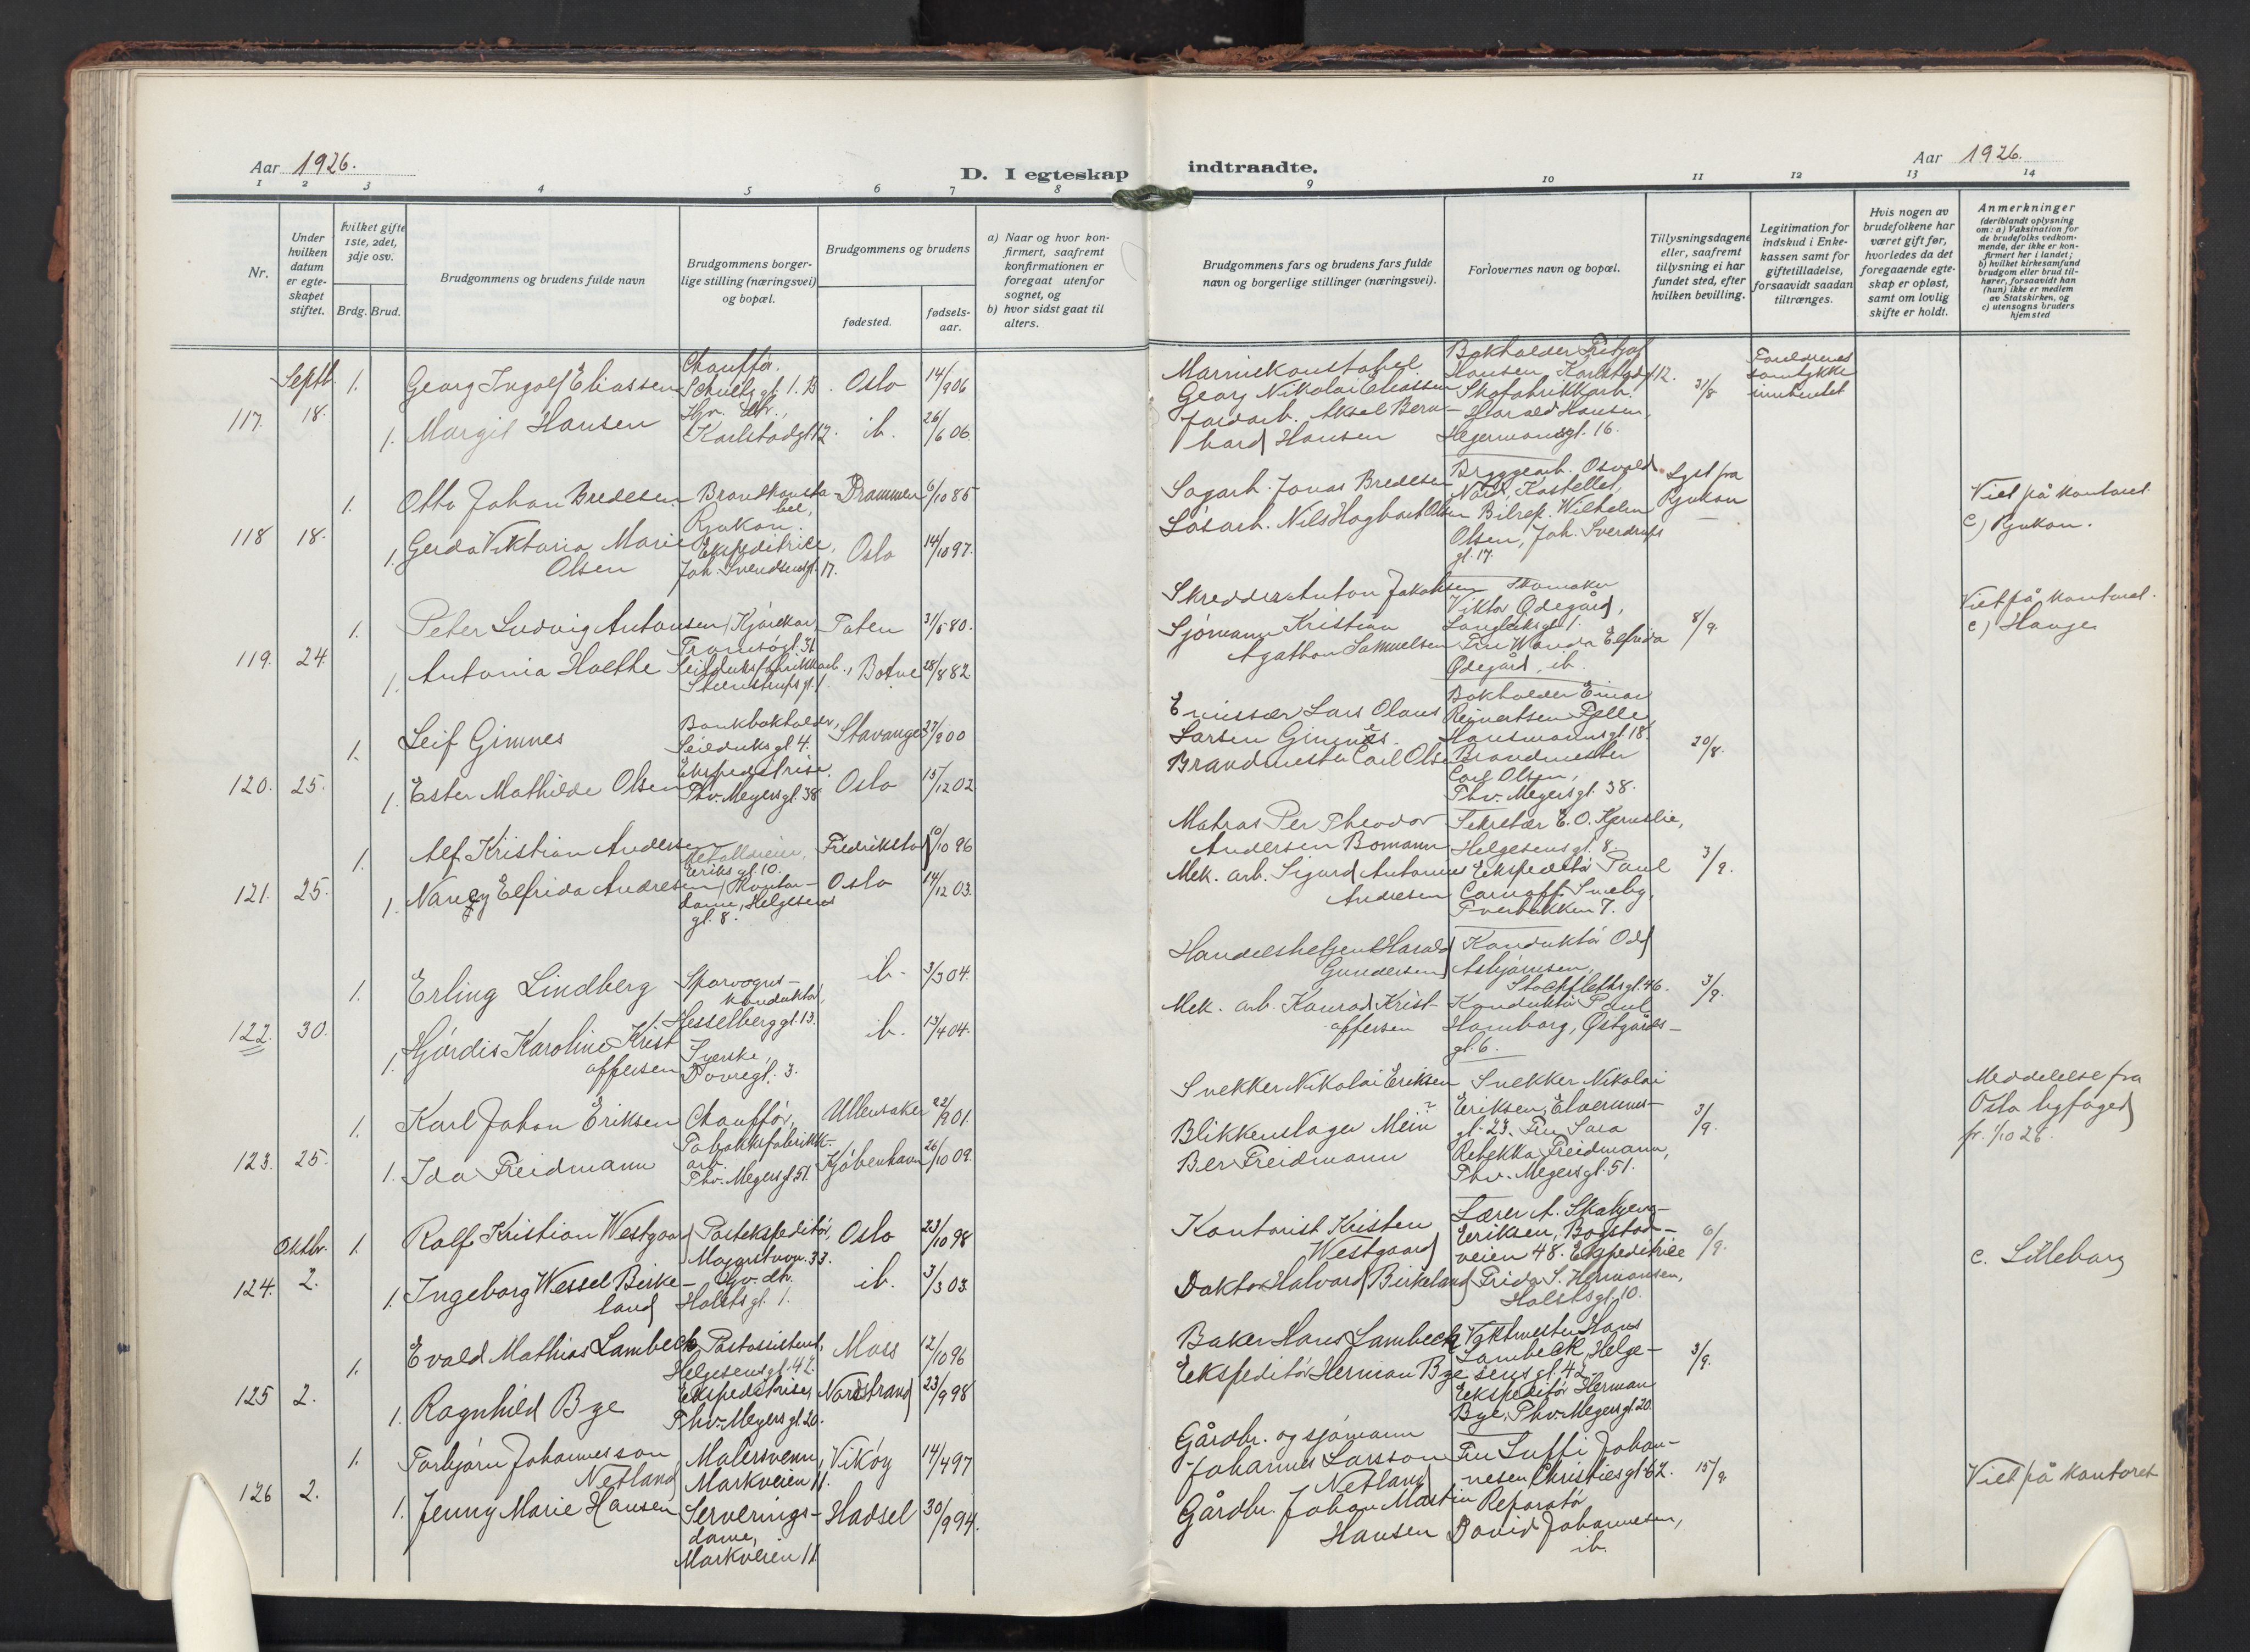 Aar 1926.
D. I egteskap indtraadte.
Aar 1926.
1 2 3 4 5 6 7 8 9 10 11 12 13 14
Nr.
Under hvilken datum er egteskapet stiftet.
Hvilket gifte 1ste, 2det, 3dje osv.
Brdg. Brud.
Brudgommens og brudens fulde navn
Brudgommens borgerlige stilling (næringsvei) og bopæl.
Brudgommens og brudens
fødested.
fødselsaar.
a) Naar og hvor konfirmert, saafremt konfirmationen er foregaat utenfor sognet, og
b) hvor sidst gaat til alters.
Brudgommens fars og brudens fars fulde navn og borgerlige stillinger (næringsvei).
Forlovernes navn og bopæl.
Tillysningsdagene eller, saafremt tillysning ei har fundet sted, efter hvilken bevilling.
Legitimation for indskud i Enkekassen samt for giftetilladelse, forsaavidt saadan tiltrænges.
Hvis nogen av brudefolkene har været gift før, hvorledes da det foregaaende egteskap er opløst, samt om lovlig skifte er holdt.
Anmerkninger
(deriblandt oplysning om: a) Vaksination for de brudefolks vedkommende, der ikke er konfirmert her i landet; b) hvilket kirkesamfund brudgom eller brud tilhører, forsaavidt han (hun) ikke er medlem av Statskirken, og c) utensogns bruders hjemsted
117. Septb. 18.
1. Georg Ingolf Eliassen Chauffør. Schultzgt. 1. B. Oslo 14/9 06
1. Margit Hansen Hjv. dtr., Karlstadgt 12. ib. 26/6 06.
Marinekonstabel Georg Nikolai Eliassen
Jordarb. Aksel Bernhard Hansen
Bokholder Fritjof Hansen, Karlstadgt 12.
Skofabrikkarb. Harald Hansen, Hegermannsgt. 16.
31/8
Foreldrenes samtykke innhentet
118 18.
1. Otto Johan Bredesen Brandkonstabel, Rjukan. Drammen 6/10 85
1. Gerda Viktoria Marie Olsen Ekspeditrice, Joh. Svendsensgt. 17. Oslo 14/10 97.
Sagarb. Jonas Bredesen
Løsarb. Nils Hagbart Olsen
Bryggearb. Osvald Nord, Kastellet,
Bilrep. Wilhelm Olsen, Joh. Sverdrups gt. 17.
Lyst fra Rjukan
Viet på kontoret
c) Rjukan.
119. 24.
1. Peter Ludvig Antonsen Kjørekar, Tromsøgt. 31 Toten 31/5 80.
1. Antonia Hoethe Seildukfabrikkarb., Steenstrupsgt. 1 Botne 28/8 82
Skredder Anton Jakobsen
Sjømann Kristian Agathon Samuelsen
Skomaker Viktor Ødegård, Langleiksgt. 1.
Fru Wanda Elfrida Ødegård, ib.
8/9.
Viet på kontoret.
c) Hauge
120. 25.
1. Leif Gimnes Bankbokholder, Seilduksgt. 4. Stavanger 27/8 00
1. Ester Mathilde Olsen Ekspeditrise. Thv. Meyersgt. 38 Oslo 15/12 02
Emissær Lars Olaus Larsen Gimnes.
Brandmester Carl Olsen
Bokholder Einar Reinertsen Fjelle Hausmannsgt. 18
Brandmester Carl Olsen, Thv. Meyersgt. 38.
20/8.
121. 25.
1. Alf Kristian Andersen Metalldreier, Eiriksgt. 10. Fredrikstad 10/10 96
1. Nancy Elfrida Andresen Kontordame, Helgesens gt. 8. Oslo 14/12 03.
Matros Per Theodor Andersen Bomann
Mek. arb. Sigurd Antonius Andresen
Sekretær E. O. Kjernslie, Helgesensgt. 8.
Ekspeditør Paul Tverbakken 7.
3/9.
122. 30.
1. Erling Lindberg Sporvogns-konduktør, Hesselberggt. 13. ib. 3/3 04.
1. Hjørdis Karoline Kristoffersen Syerske, Dovregt. 3. ib. 13/4 04.
Handelsbetjent Harald Gundersen
Mek. arb. Konrad Kristoffersen
Konduktør Odd Asbjørnsen, Stockflethsgt. 46.
Konduktør Paul Hamborg, Østgårdsgt. 6.
3/9.
123. 25.
1. Karl Johan Eriksen Chauffør, Ullensaker 22/9 01.
1. Ida Freidmann Tobakksfabrikk-arb. Thv. Meyersgt 51. Kjøbenhavn 26/10 09.
Snekker Nikolai Eriksen
Blikkenslager Mein Ber Freidmann
Snekker Nikolai Eriksen, Elverumsgt. 23.
Fru Sara Rebekka Freidmann, Thv. Meyersgt. 51.
3/9.
Meddelelse fra Oslo byfoged fr. 1/10 26.
124. Oktbr. 2.
1. Rolf Kristian Westgaard Postekspeditør, 33. Oslo 23/10 98
1. Ingeborg Wessel Birkeland Hjv. dtr. Holstsgt. 1. ib. 3/3 03.
Kontorist Kristen Westgaard
Doktor Halvard Birkeland
Lærer A. Eriksen, Bogstadveien 48.
Ekspeditrice Frida S. Hermansen, Holstsgt. 10.
6/9.
c. Lilleborg
125 2.
1. Evald Mathias Lambech Postassistent, Helgesensgt. 42. Moss 12/10 96
1. Ragnhild Bye Ekspeditrise, Thv. Meyersgt. 20. Nordstrand 23/9 98
Baker Hans Lambech
Ekspeditør Herman Bye
Vaktmester Hans Lambeck, Helgesensgt. 42.
Ekspeditør Herman Bye, Thv. Meyersgt. 20.
3/9.
126 2.
1. Torbjørn Johannesson Netland Malersvenn, Markveien 11. Vikøy 14/4 97
1. Jenny Marie Hansen Serveringsdame, Markveien 11 Hadsel 30/9 94.
Gårdbr. og sjømann Johannes Larsson Netland
Gårdbr. Johan Martin Hansen
Fru Luffi Johannesen Christiesgt 62.
Reparatør David Johannesen, ib.
15/9
Viet på kontoret